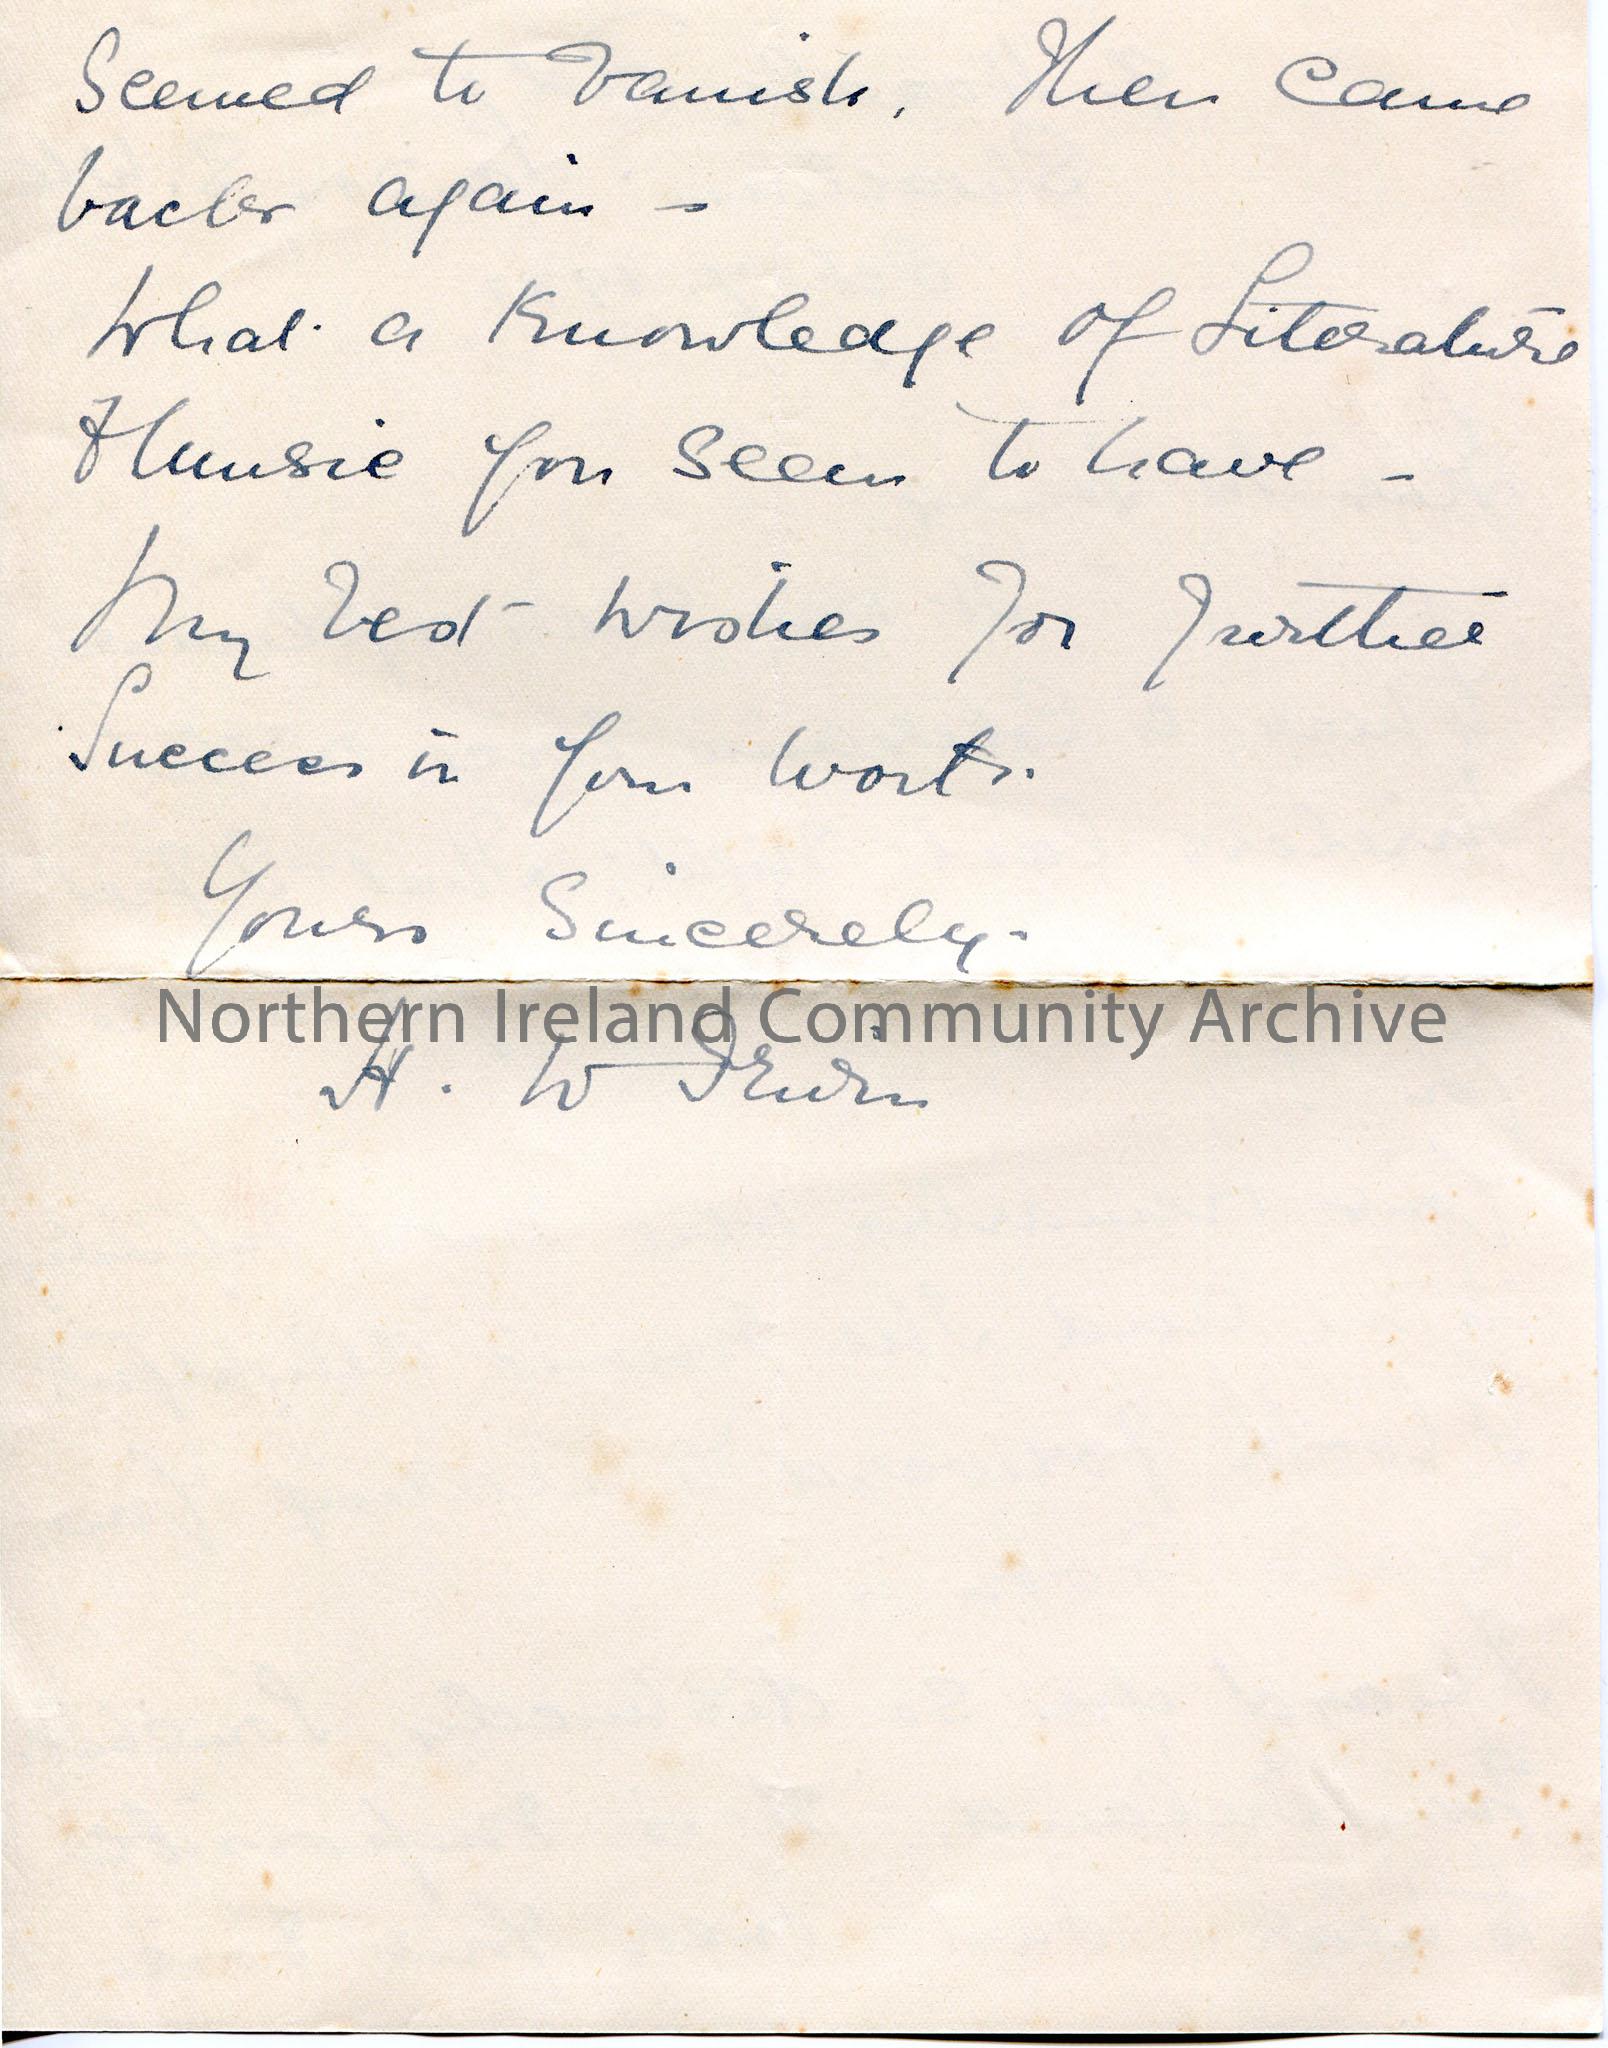 Seemed to vanish, then came
back again –
What a knowledge of Literature
& Music you seem to have –
My best wishes for further
Success in your work.
Yours Sincerely.
Northern Ireland Community Archive
H. W Irwin